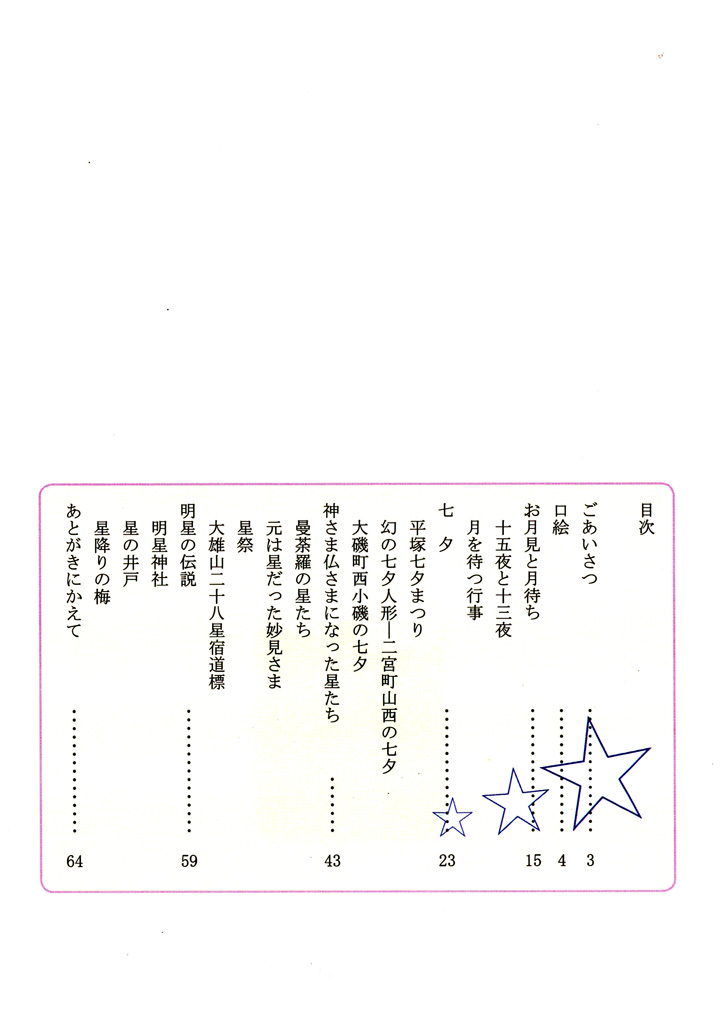 目次
ごあいさつ………………3
口絵………………4
お月見と月待ち………………15
十五夜と十三夜
月を待つ行事
七　夕………………23
平塚七夕まつり
幻の七夕人形―二宮町山西の七夕
大磯町西小磯の七夕
神さま仏さまになった星たち………43
曼荼羅の星たち
元は星だった妙見さま
星祭
大雄山二十八星宿道標
明星の伝説………………59
明星神社
星の井戸
星降りの梅
あとがきにかえて………………64